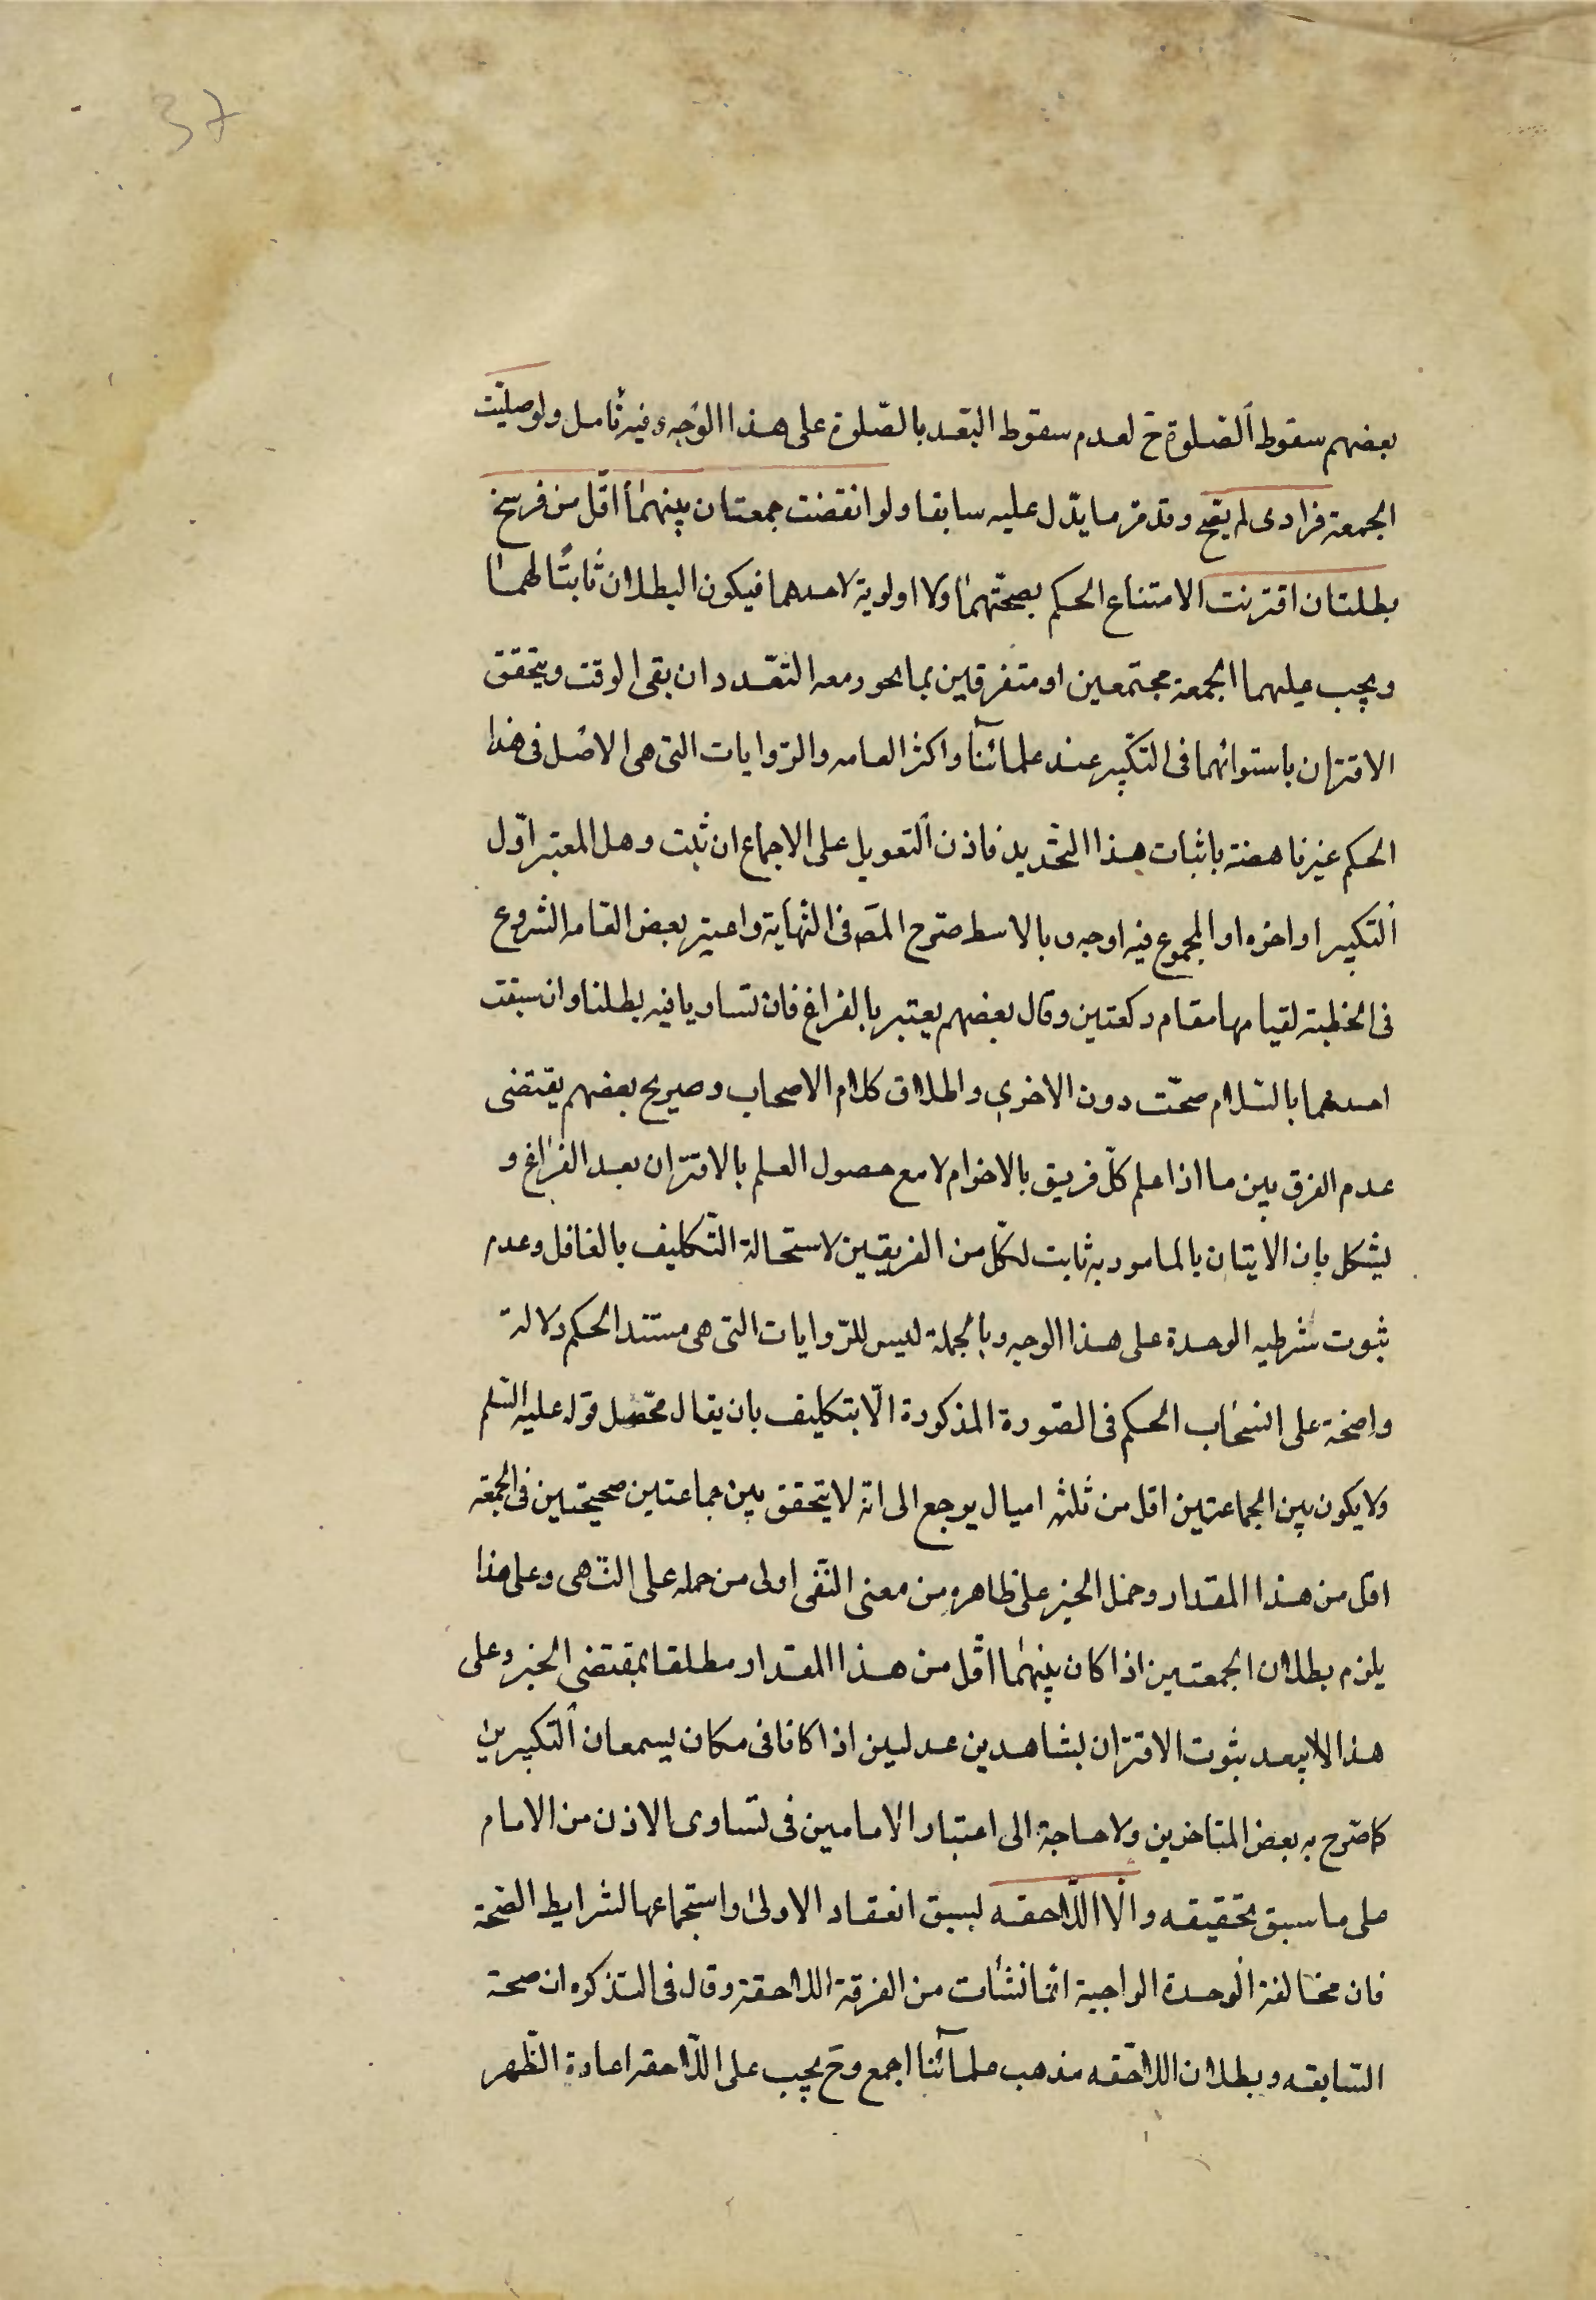 37
بعضهم سقوط الصلوة ح لعدم سقوط التعبد بالصّلوة على هذا الوجه وفيه تأمل ولو صليّت
الجمعة فرادى لم يقع وقد مرّ ما يدّل عليه سابقا ولو انقضت جمعتان بينهما اقّل من فرسخ
بطلتا ان اقترنت الامتناع الحكم بصحّتهما ولا اولوية لاحدهما فيكون البطلان ثابتًا لهما
ويجب عليهما الجمعة مجتمعين او متفرقين بما يجوز معه التعّدد ان بقى الوقت ويتحقق
الاقتران باستوائهما فى التكبير عند علمائنا واكثر العامه والرّوايات التى هى الاصل فى هذا
الحكم غير ناهضة باثبات هذا التحّديد فاذن التعويل على الاجماع ان ثبت وهل المعتبر اوّل
التكبير او اخره او المجموع فيه اوجه وبالاسط صّرح المصَ فى النهاية واعتبر بعض العامه الشروع
فى الخطبة لقيامها مقام ركعتين وقال بعضهم يعتبر بالفراغ فان تساويا فيه بطلنا وان سبقت
احدهما بالسّلام صحّت دون الاخرى واطلاق كلام الاصحاب وصريح بعضهم يقتضى
عدم الفرق بين ما اذا علم كلّ فريق بالاخر ام لا مع حصول العلم بالاقتران بعد الفراغ و
يشكل بان الايتان بالمامور به ثابت لكلّ من الفريقين لاستحالة التّكليف بالغافل وعدم
ثبوت شرطيه الوحدة على هذا الوجه وبالجملة ليس للرّوايات التى هى مستند الحكم دلالة
واضحة على انسحاب الحكم فى الصّورة المذكورة الّا بتكليف بان يقال محّصل قوله عليه السّلم
ولا يكون بين الجماعتين اقل من ثلثه اميال يرجع الى انّه لا يتحقق بين جماعتين صحيحتين فى الجمعّة
اقل من هذا المقدار وحمل الخبر على ظاهره من معنى النّفى اولى من حمله على النّهى وعلى هذا
يلزم بطلان الجمعتين اذا كان بينهما اقّل من هذا المقدار مطلقا بمقتضى الخبر وعلى
هذا لا يبعد ثبوت الاقتران بشاهدين عدلين اذا كانا فى مكان يسمعان التكبيرين
كما صّرح به بعض المتاخرين ولا حاجة الى اعتبار الامامين فى تساوى الاذن من الامام
على ما سبق تحقيقه والّا اللّاحقه لسبق انعقاد الاولى واستجماعها لشرايط الصّحة
فان مخالفة الوحدة الواجبة انّما نشأت من الفرقة اللاحقة وقال فى التذكره ان صحة
السّابقه وبطلان اللاحّقه مذهب علمائنا اجمع وحَ يجب على اللّاحقه اعادة الظّهر